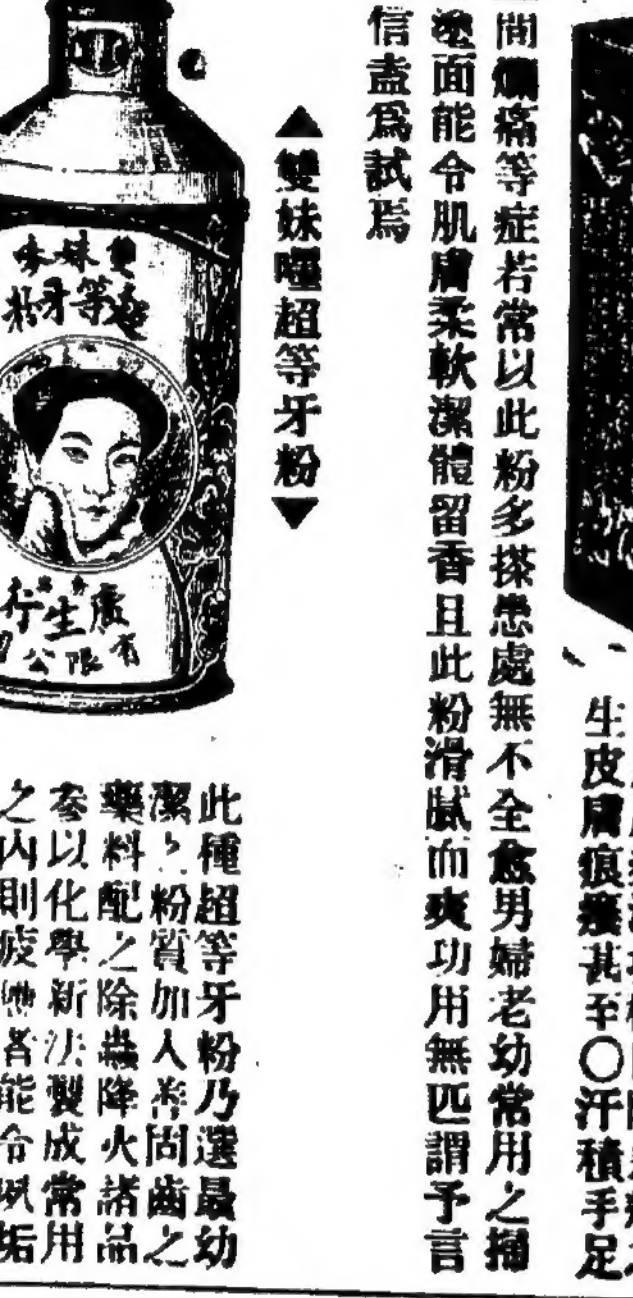 生皮膚痕癢甚至〇汗積手足
間爛痛等症若常以此粉多搽患處無不全愈男婦老幼常用之搽
塗面能令肌膚柔軟潔體留香且此粉滑膩而爽功用無匹謂予言
信盍爲試焉
▲雙妹嚜超等牙粉▼
雙妹嚜
超等牙粉
廣生行
有限公司
此種超等牙粉乃選最幼
潔之粉質加入善固齒之
藥料配之除蟲降火諸品
參以化學新法製成常用
之內則疲 者能令 垢